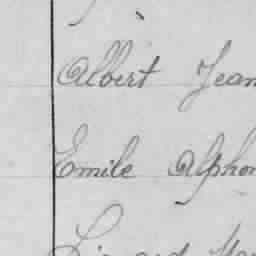 Albert Jean
Emile Alphon